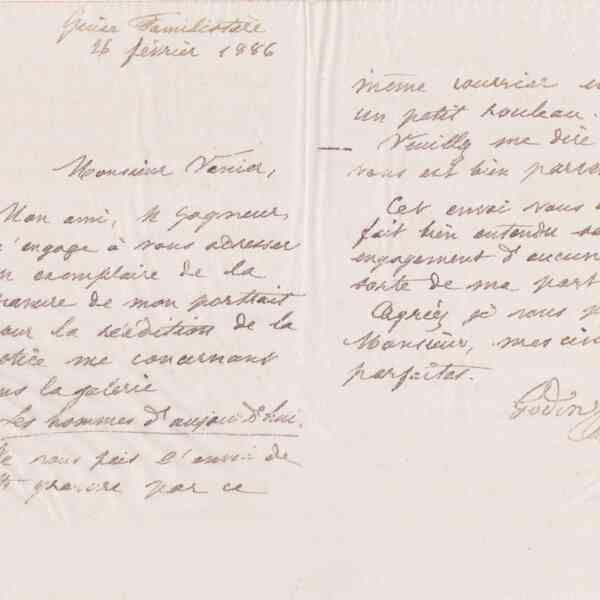 Guise Familistère
26 février 1886
Monsieur Vanier,
Mon ami, M Gagneur,
m'engage à vous adresser
un exemplaire de la
gravure de mon portrait
pour la réédition de la
notice me concernant
dans la galerie
Les hommes d'aujourd'hui.
Je vous fais l'envoi de
cette gravure par ce
même courrier en
un petit rouleau.
Veuillez me dire
vous est bien parve
Cet envoi vous
fait bien entendu sa
engagement d'aucun
sorte de ma part
Agréez je vous p
Monsieur, mes civ
parfaites.
Godin